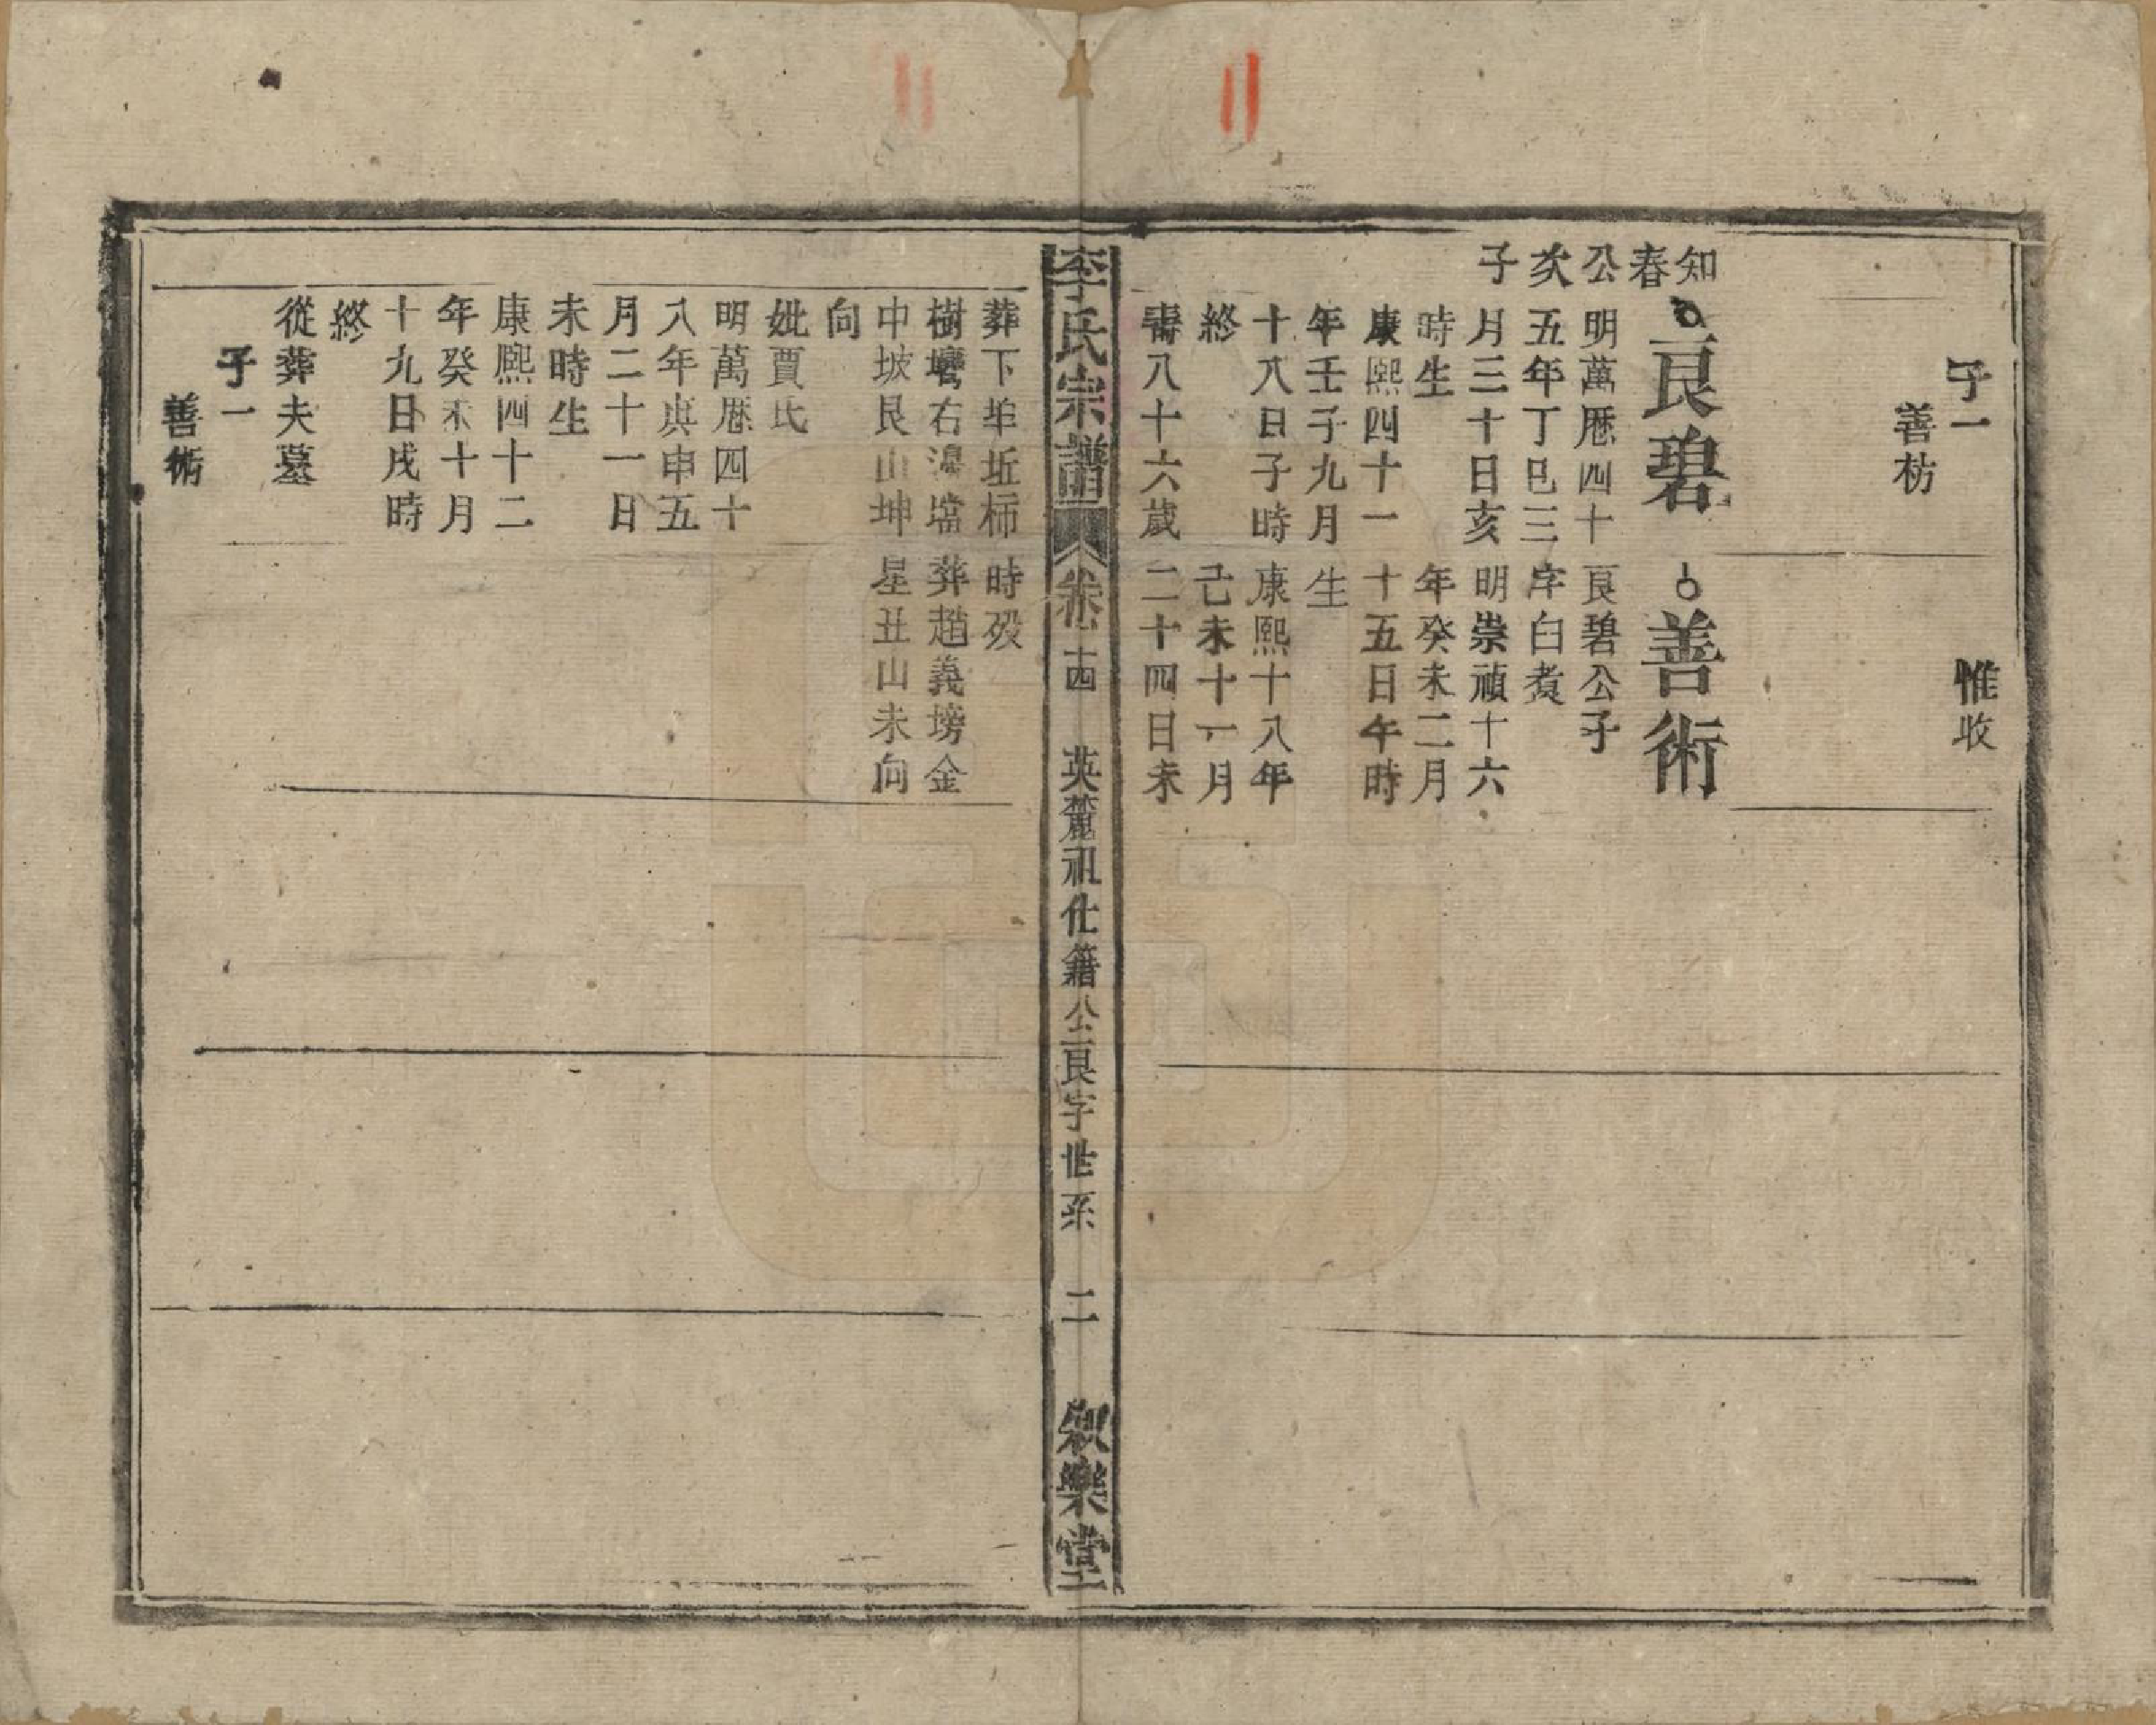 子一
善枋
惟收
知春公次子
良碧
明萬厯四十
五年丁巳三
月三十日亥
時生
康熙四十一
年壬子九月
十八日子時
終
壽八十六歲
善術
良碧公子
字白煮
明崇禎十六
年癸未二月
十五日午時
生
康熙十八年
己未十一月
二十四日未
李氏宗譜
卷十四
英麓祖仕籍公良字世系
二
叙樂堂
葬下垾坵柿
樹灣右邊壋
中坡艮山坤
向
妣賈氏
明萬厯四十
八年庚申五
月二十一日
未時生
康熙四十二
年癸未十月
十九日戌時
終
從葬夫墓
子一
善術
時歿
葬趙義塝金
星丑山未向